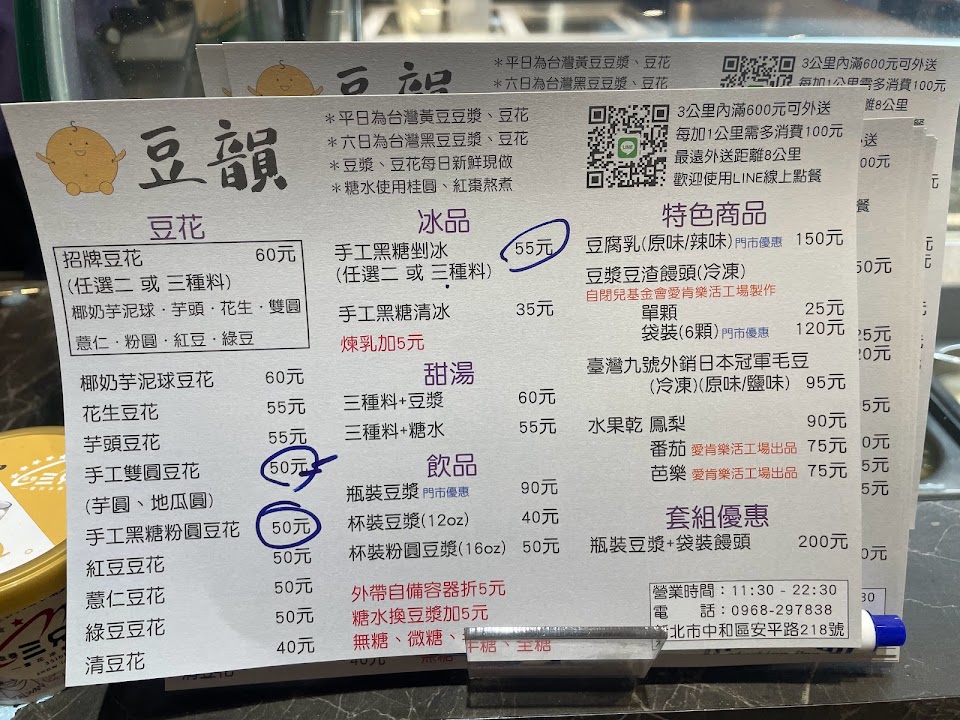 豆韻
＊平日為台灣黃豆豆漿、豆花
＊六日為台灣黑豆豆漿、豆花
＊豆漿、豆花每日新鮮現做
＊糖水使用桂圓、紅棗熬煮
LINE
3公里內滿600元可外送
每加1公里需多消費100元
最遠外送距離8公里
歡迎使用LINE線上點餐
豆花
招牌豆花 60元
(任選二 或 三種料)
椰奶芋泥球·芋頭·花生·雙圓
薏仁·粉圓·紅豆·綠豆
椰奶芋泥球豆花 60元
花生豆花 55元
芋頭豆花 55元
手工雙圓豆花 50元
(芋圓、地瓜圓)
手工黑糖粉圓豆花 50元
紅豆豆花 50元
薏仁豆花 50元
綠豆豆花 50元
清豆花 40元
冰品
手工黑糖剉冰 55元
(任選二 或 三種料)
手工黑糖清冰 35元
煉乳加5元
甜湯
三種料+豆漿 60元
三種料+糖水 55元
飲品
瓶裝豆漿 門市優惠 90元
杯裝豆漿(12oz) 40元
杯裝粉圓豆漿(16oz) 50元
外帶自備容器折5元
糖水換豆漿加5元
無糖、微糖、半糖、全糖
特色商品
豆腐乳(原味/辣味) 門市優惠 150元
豆漿豆渣饅頭(冷凍)
自閉兒基金會愛肯樂活工場製作
單顆 25元
袋裝(6顆) 門市優惠 120元
臺灣九號外銷日本冠軍毛豆
(冷凍)(原味/鹽味) 95元
水果乾 鳳梨 90元
番茄 愛肯樂活工場出品 75元
芭樂 愛肯樂活工場出品 75元
套組優惠
瓶裝豆漿+袋裝饅頭 200元
營業時間：11:30 - 22:30
電 話：0968-297838
新北市中和區安平路218號
＊平日為台灣黃豆豆漿、豆花
＊六日為台灣黑豆豆漿、豆花
3公里內滿600元可外送
每加1公里需多消費100元